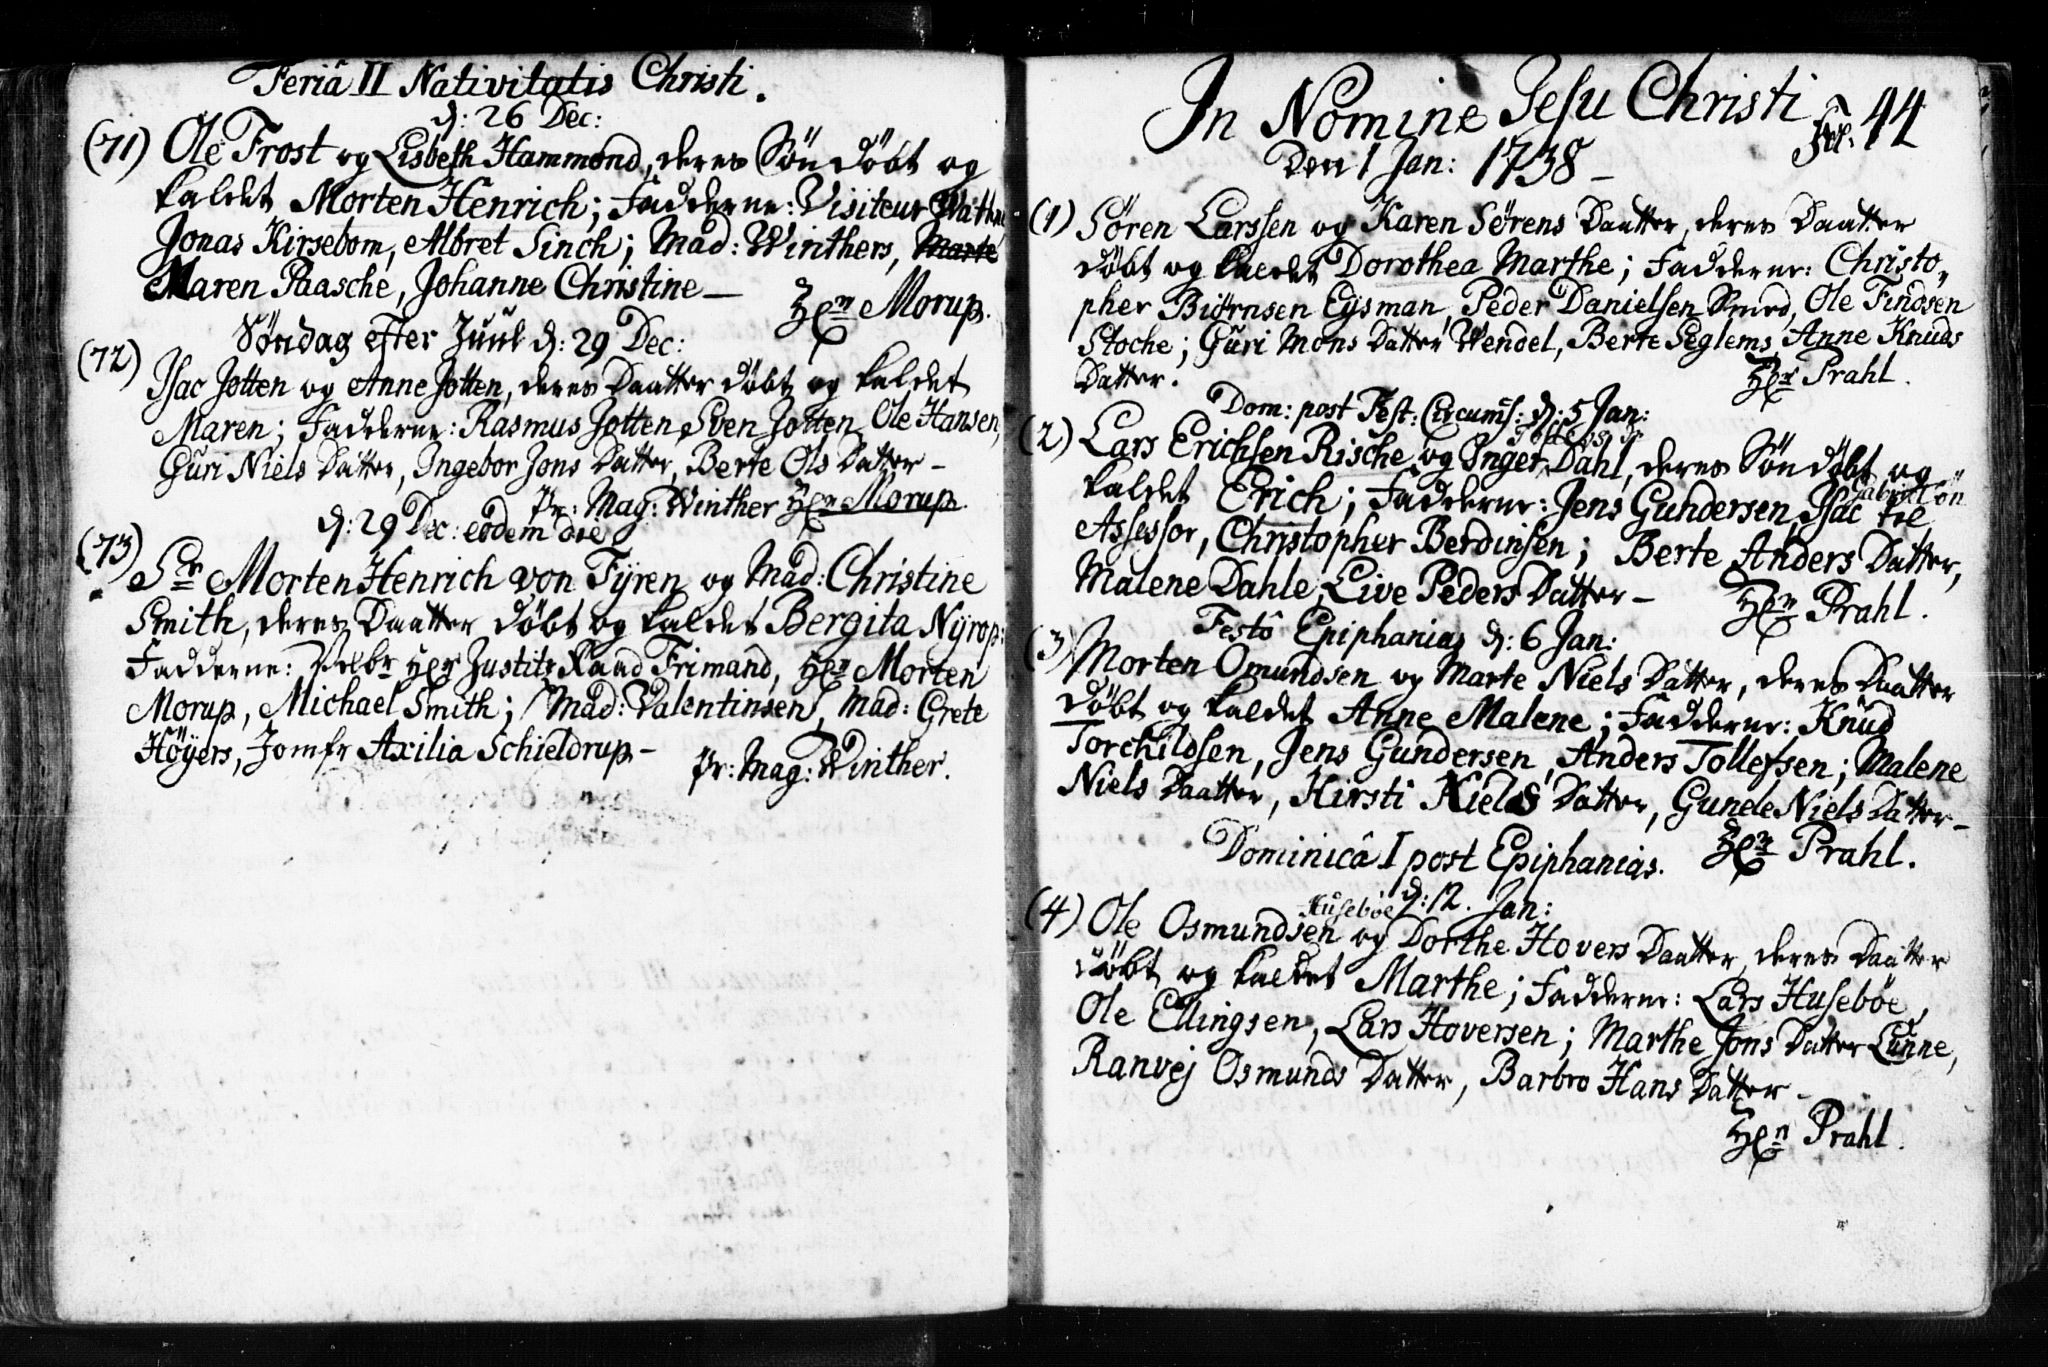 Feriâ II Nativitatis Christi.
d: 26 Dec:
(71) Ole Frost og Lisbeth Hammond, deres Sön döbt og
kaldet Morten Henrich; Fadderne: Visiteur
Jonas Kirsebom, Albret Sinch; Mad: Winthers, Marte
Maren Paasche, Johanne Christine —
Hr Morup.
Söndag efter Juul d: 29 Dec:
(72) Isac Jotten og Anne Jotten, deres Daatter döbt og kaldet
Maren; Fadderne: Rasmus Jotten, Sven Jotten, Ole Hansen,
Guri Niels Datter, Ingebor Jons Datter, Berte Ols Datter —
Pr: Mag: Winther Hr Morup.
d: 29 Dec: eodem die
(73) Sr Morten Henrich von Fyren og Mad: Christine
Smith, deres Daatter döbt og kaldet Bergita Nyrop:
Fadderne: Hr Justitz Raad Frimand, Hr Morten
Morup, Michael Smith; Mad: Valentinsen, Mad: Grete
Höyers, Jomfr Axilia Schieldrup —
Pr: Mag: Winther.
In Nomine Jesu Christi
Fol: 44
Den 1 Jan: 1738 —
(1) Sören Larssen og Karen Sörens Daatter, deres Daatter
döbt og kaldet Dorothea Marthe; Fadderne: Christo„
pher Biörnsen Eysman, Peder Danielsen Smed, Ole Findsen
Stoche; Guri Mons Datter Wendel, Berte Seglems, Anne Knuds
Datter.
Hr Prahl.
Dom: post Fest: Circumis: d: 5 Jan:
(2) Lars Erichsen Rische og Inger Dahl, deres Sön döbt og
kaldet Erich; Fadderne: Jens Gundersen, Isac til
Assessor, Christopher Berdinsen; Berte Anders Datter,
Malene Dahle, Live Peders Datter —
Hr Prahl.
Festô Epiphanias d: 6 Jan:
(3) Morten Omundsen og Marte Niels Datter, deres Daatter
döbt og kaldet Anne Malene; Fadderne: Knud
Torchildsen, Jens Gundersen, Anders Tollefsen; Malene
Niels Daatter, Kirsti Kiels Datter, Gunele Niels Datter —
Hr Prahl.
Dominicâ I post Epiphanias.
d: 12. Jan:
Huseböe
(4) Ole Osmundsen og Dorthe Hovers Daatter, deres Daatter
döbt og kaldet Marthe; Fadderne: Lars Huseböe,
Ole Ellingsen, Lars Hoversen; Marthe Jons Datter Lunne,
Ranvej Osmunds Datter, Barbro Hans Datter —
Hr Prahl.